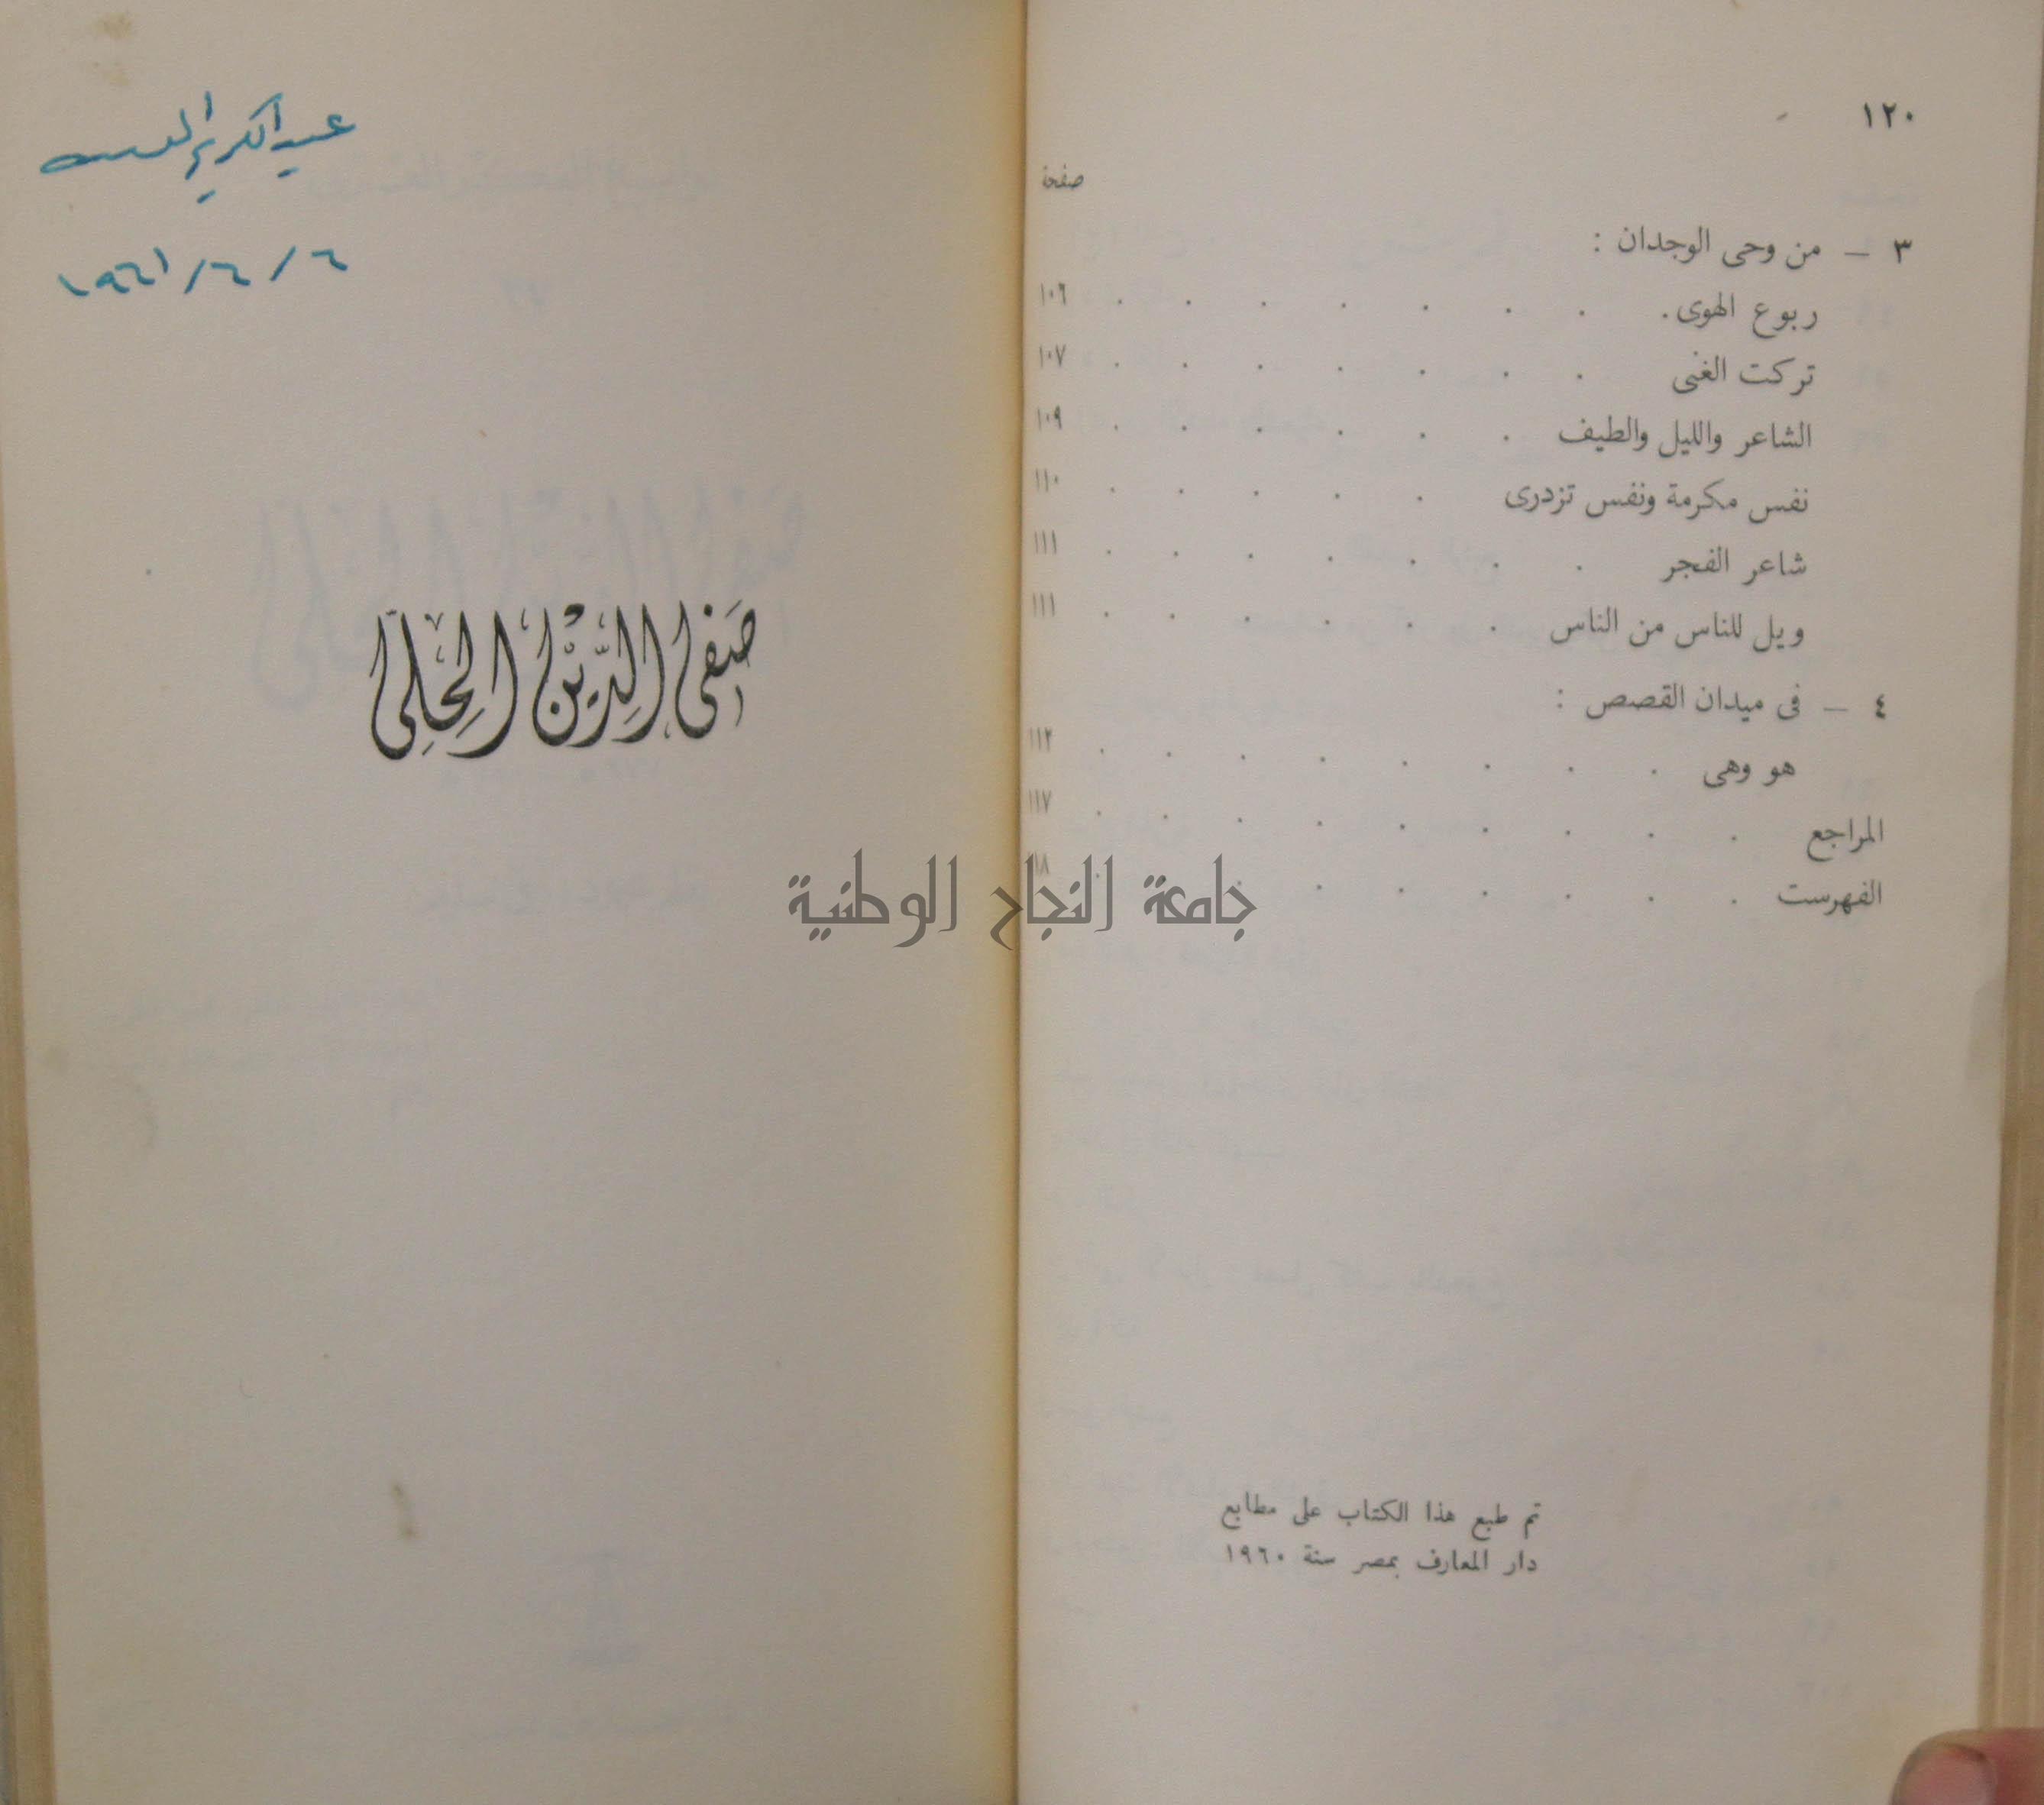 ١٢٠
صفحة
٣ — من وحى الوجدان :
ربوع الهوى . . . . . . . . ١٠٦
تركت الغنى . . . . . . . ١٠٧
الشاعر والليل والطيف . . . . . . ١٠٩
نفس مكرمة ونفس تزدرى . . . . . ١١٠
شاعر الفجر . . . . . . . ١١١
ويل للناس من الناس . . . . . . ١١١
٤ — فى ميدان القصص :
هو وهى . . . . . . . . ١١٢
المراجع . . . . . . . . . ١١٧
الفهرست . . . . . . . . . ١١٨
تم طبع هذا الكتاب على مطابع
دار المعارف بمصر سنة ١٩٦٠
جامعة النجاح الوطنية
عبد الكريم
٦/٦/١٩٦١
صفى الدين الحلى